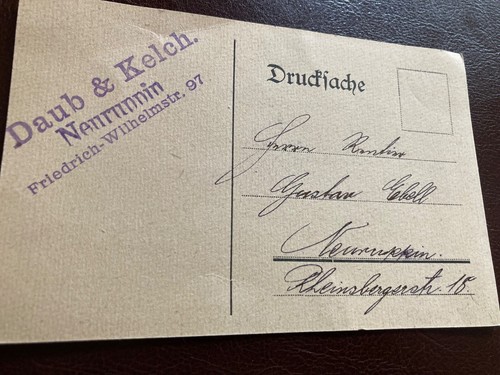 Daub & Kelch.
Neuruppin
Friedrich-Wilhelmstr. 97
Drucksache
Herrn Rentier
Gustav Ebell
Neuruppin.
Rheinsbergerstr. 15.